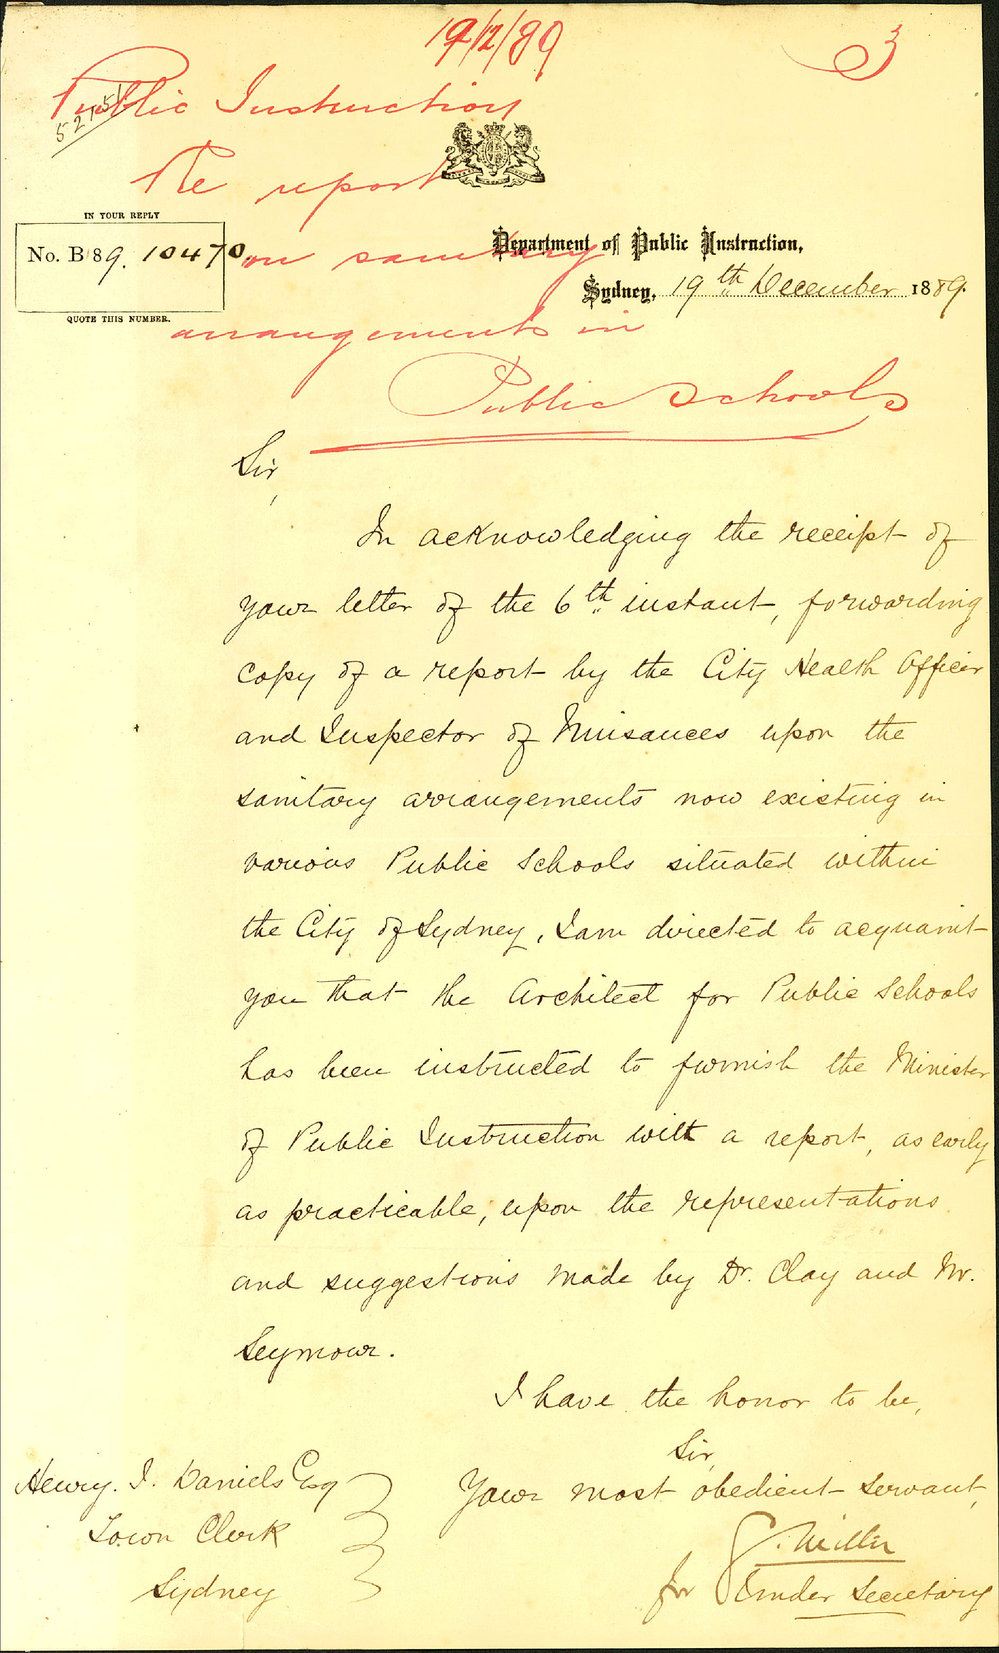 19/12/89
3
Public Instruction
5215
Re report
on sanitary
arrangements in
Public Schools
IN YOUR REPLY
No. B 89. 10470
QUOTE THIS NUMBER.
Department of Public Instruction,
Sydney, 19th December 1889.
Sir,
In acknowledging the receipt of
your letter of the 6th instant, forwarding
copy of a report by the City Health Officer
and Inspector of Nuisances upon the
sanitary arrangements now existing in
various Public Schools situated within
the City of Sydney, I am directed to acquaint
you that the Architect for Public Schools
has been instructed to furnish the Minister
of Public Instruction with a report, as early
as practicable, upon the representations
and suggestions made by Dr. Clay and Mr.
Seymour.
I have the honor to be,
Sir,
Your most obedient servant,
Miller
for Under Secretary
Henry. I. Daniels Esq
Town Clerk
Sydney